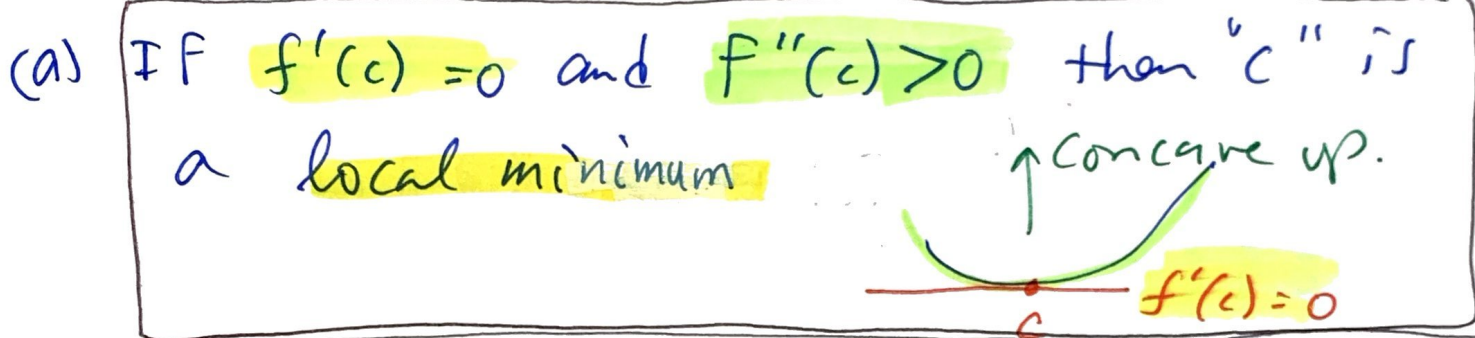 (a) If f'(c) = 0 and f''(c) > 0 then "c" is
a local minimum
↑ concave up.
f'(c) = 0
c